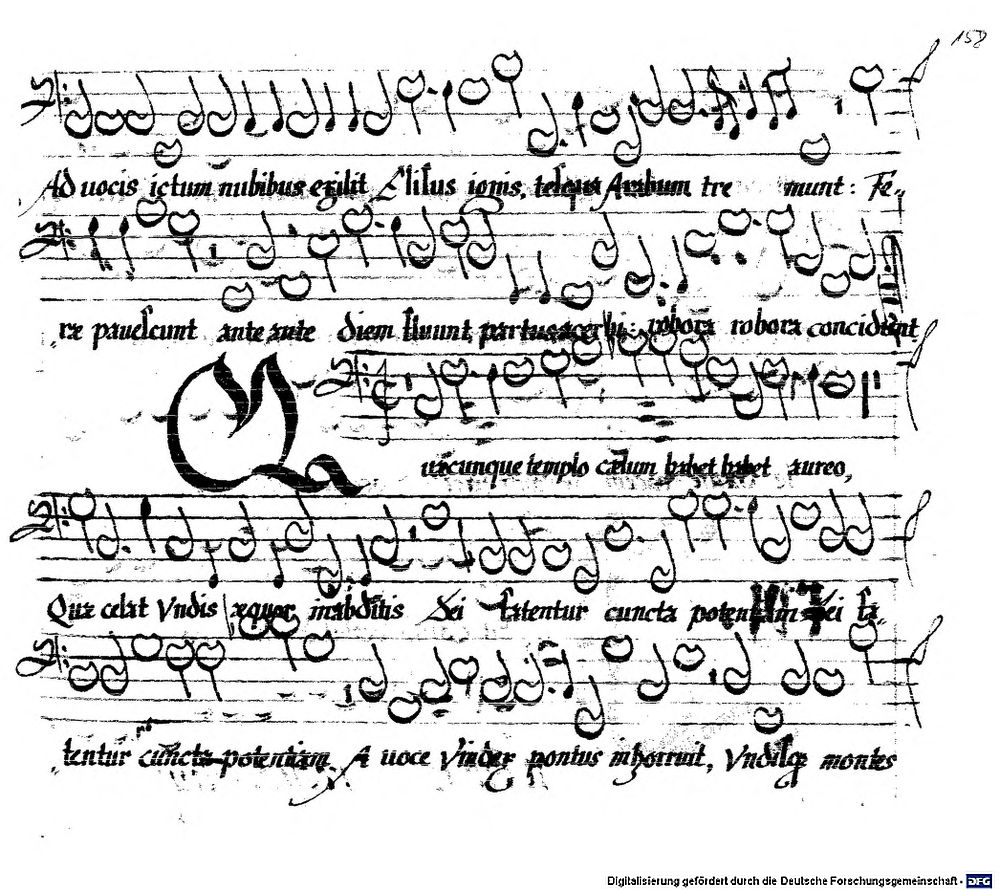 158
Ad uocis ictum nubibus exilit Elisus ignis, telqus Arabum tre munt: Fe,,
ræ pauescunt ante ante diem fluunt partus acerbi: robora robora concidunt
Quæcunque templo cælum habet habet aureo,
Quæ celat Vndis æquor in abditis Dei fatentur cuncta potentiam Dei fa,,
tentur cuncta potentiam A uoce Vindex pontus inhorruit, Vndisqꝫ montes
Digitalisierung gefördert durch die Deutsche Forschungsgemeinschaft - DFG